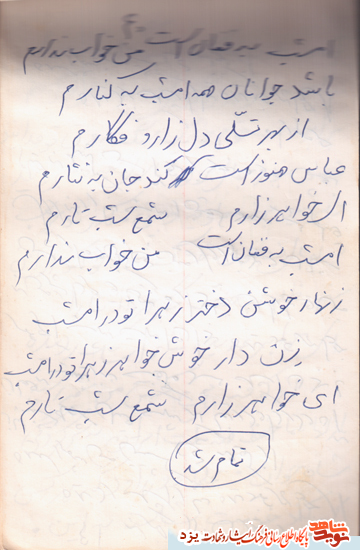 امشب به فغان است من خواب ندارم
باشد جوانان همه امشب به کنارم
از بهر تسلّی دل زار و فکارم
عباس هنوز است کند جان به نثارم
ای خواهر زارم شمع شب تارم
امشب به فغان است من خواب ندارم
زنهار خوشی دختر زهرا تو در امشب
زن دار خوش خواهر زهرا تو در امشب
ای خواهر زارم شمع شب تارم
تمام شد
نوید شاهد
پایگاه اطلاع رسانی فرهنگ ایثار و شهادت یزد